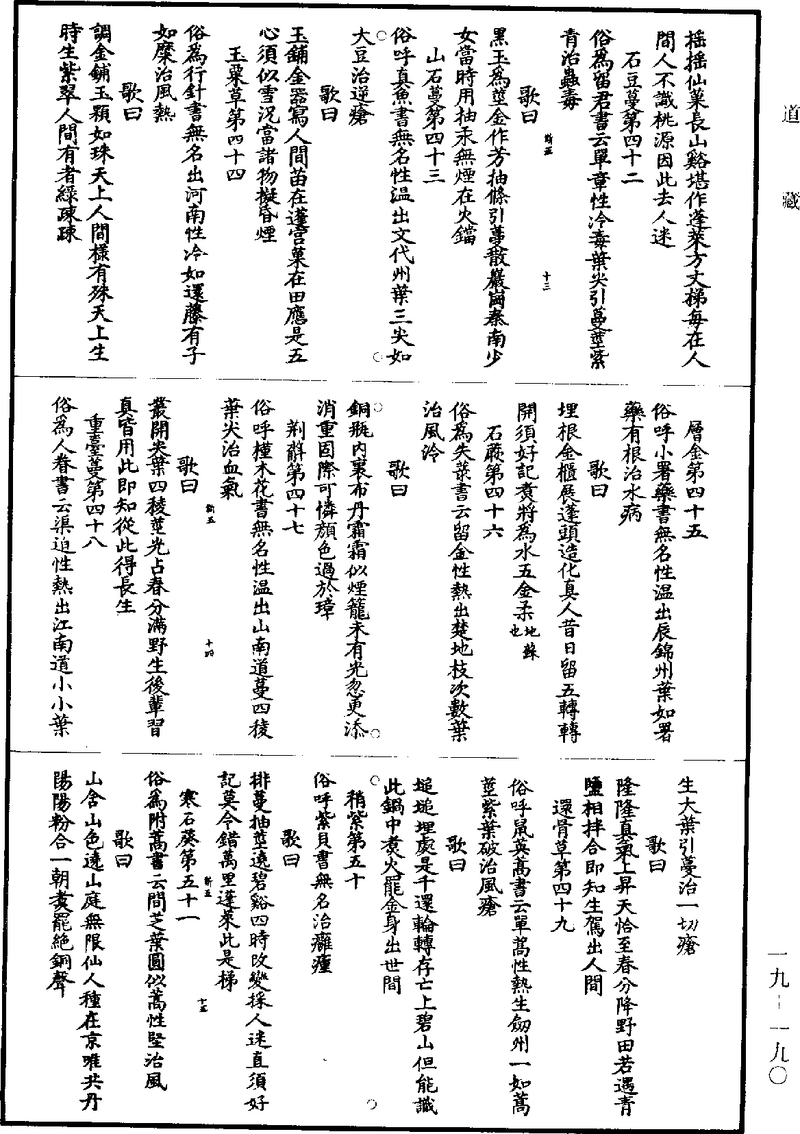 道藏
搖搖仙菓長山谿堪作蓬萊方丈梯每在人
間人不識桃源因此去人迷
石豆蔓第四十二
俗為留君書云單章性冷毒葉尖引蔓莖紫
青治蟲毒
歌曰
黑玉為莖金作芳抽條引蔓散巖崗秦南少
女當時用抽汞無煙在火鐺
山石蔓第四十三
俗呼真魚書無名性溫出文代州葉三尖如
大豆治逆瘡
歌曰
玉鋪金器寫人間苗在蓬宮菓在田應是五
心須似雪況當諸物擬昏煙
玉粟草第四十四
俗為行針書無名出河南性冷如還藤有子
如糜治風熱
歌曰
調金鋪玉顆如珠天上人間樣有殊天上生
時生紫翠人間有者綠疎疎
層金第四十五
俗呼小署藥書無名性溫出辰錦州葉如署
藥有根治水病
歌曰
埋根金櫃展蓬頭造化真人昔日留五轉轉
開須好記煮將為水五金柔地蘇也
石蕨第四十六
俗為失蔉書云留金性熱出楚地枝次數葉
治風冷
歌曰
銅瓶內裏布丹霜霜似煙籠未有光忽更添
消重固際可憐顏色過於璋
荊薢第四十七
俗呼槿木花書無名性溫出山南道蔓四稜
葉尖治血氣
歌曰
叢開尖葉四稜莖光占春分滿野生後輩習
真皆用此即知從此得長生
重臺蔓第四十八
俗為人眷書云渠迫性熱出江南道小小葉
生大葉引蔓治一切瘡
歌曰
隆隆真氣上昇天恰至春分降野田若遇青
鹽相拌合即知生駕出人間
還骨草第四十九
俗呼鼠英蒿書云單蒿性熱生劒州一如蒿
莖紫葉破治風瘡
歌曰
塠塠埋處是千還輪轉存亡上碧山但能識
此鍋中煮火罷金身出世間
稍紫第五十
俗呼紫貝書無名治癰瘇
歌曰
排蔓抽莖遶碧谿四時改變採人迷直須好
記莫令錯萬里蓬萊此是梯
寒石葵第五十一
俗為附蒿書云間芝葉圓似蒿性堅治風
歌曰
山舍山色遶山庭無限仙人種在京唯共丹
陽陽粉合一朝煑罷絕銅聲
一九—一九〇